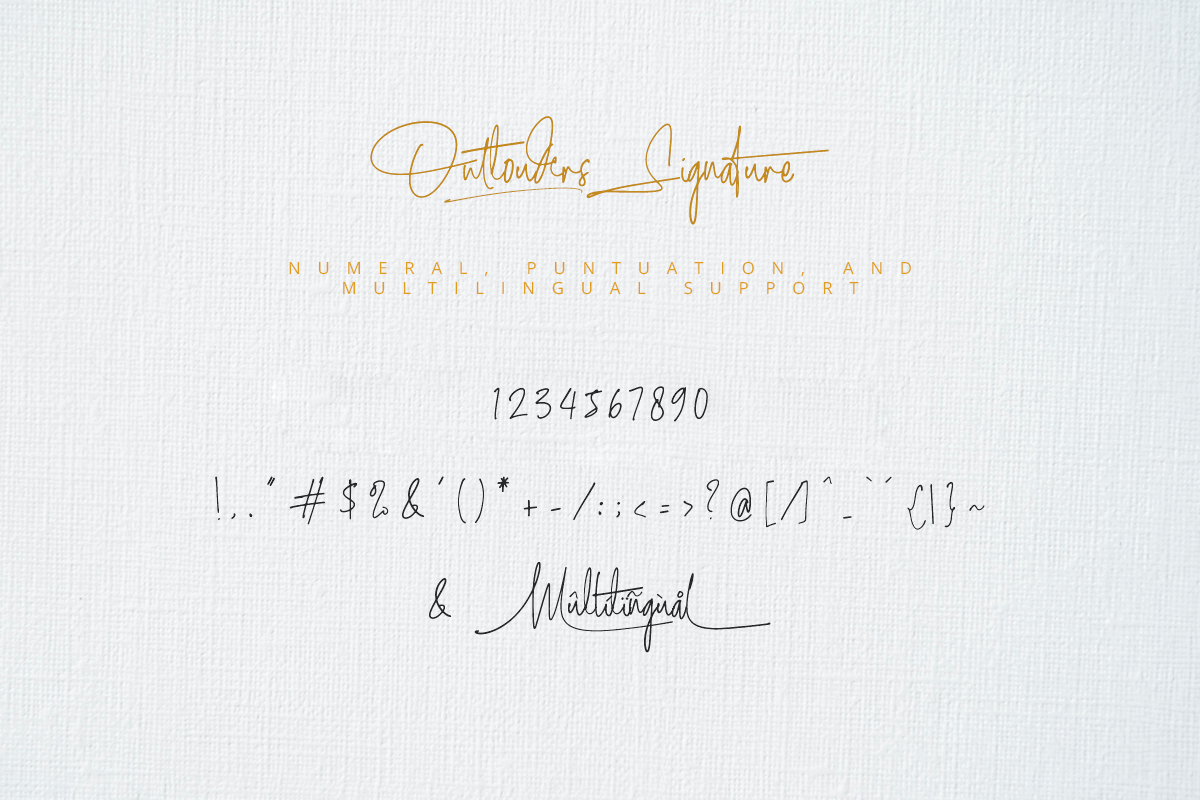 Outlouders Signature
NUMERAL, PUNTUATION, AND
MULTILINGUAL SUPPORT
1234567890
!,."#$%&'()*+-/:;<=>?@[/]^_`´{|}~
& Mûltílïñgùål